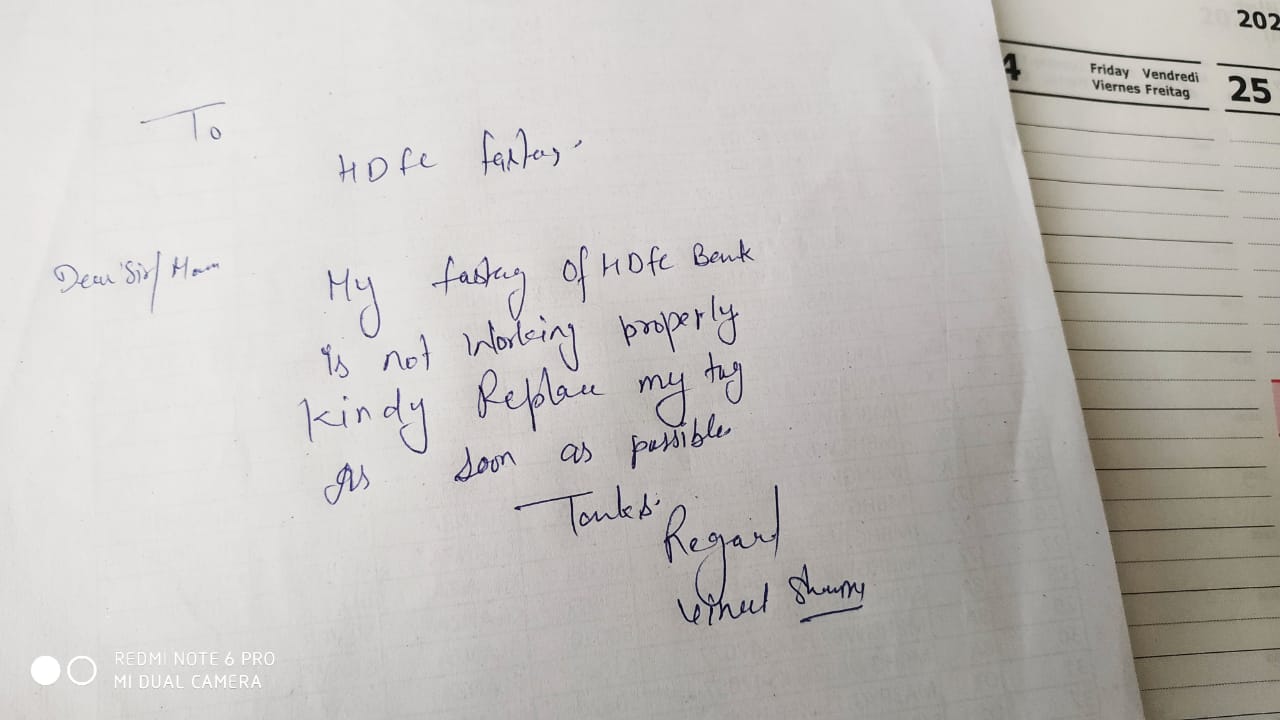 To
HDfc fastag.
Dear Sir/Mam
My fastag Of HDfc Bank
is not Working properly
Kindy Replace my tag
As soon as possible
Tanks.
Regard
Vineet Sharma
202
4
Friday Vendredi
Viernes Freitag
25
REDMI NOTE 6 PRO
MI DUAL CAMERA